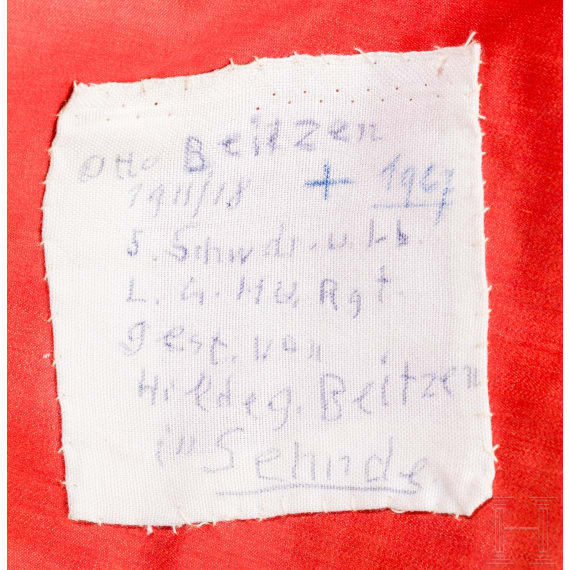 Otto Beitzen
1911/18 + 1967
5. Schwdr. u. Lb.
L. G. Hu. Rgt.
gest. von
Hildeg. Beitzen
in Sehnde